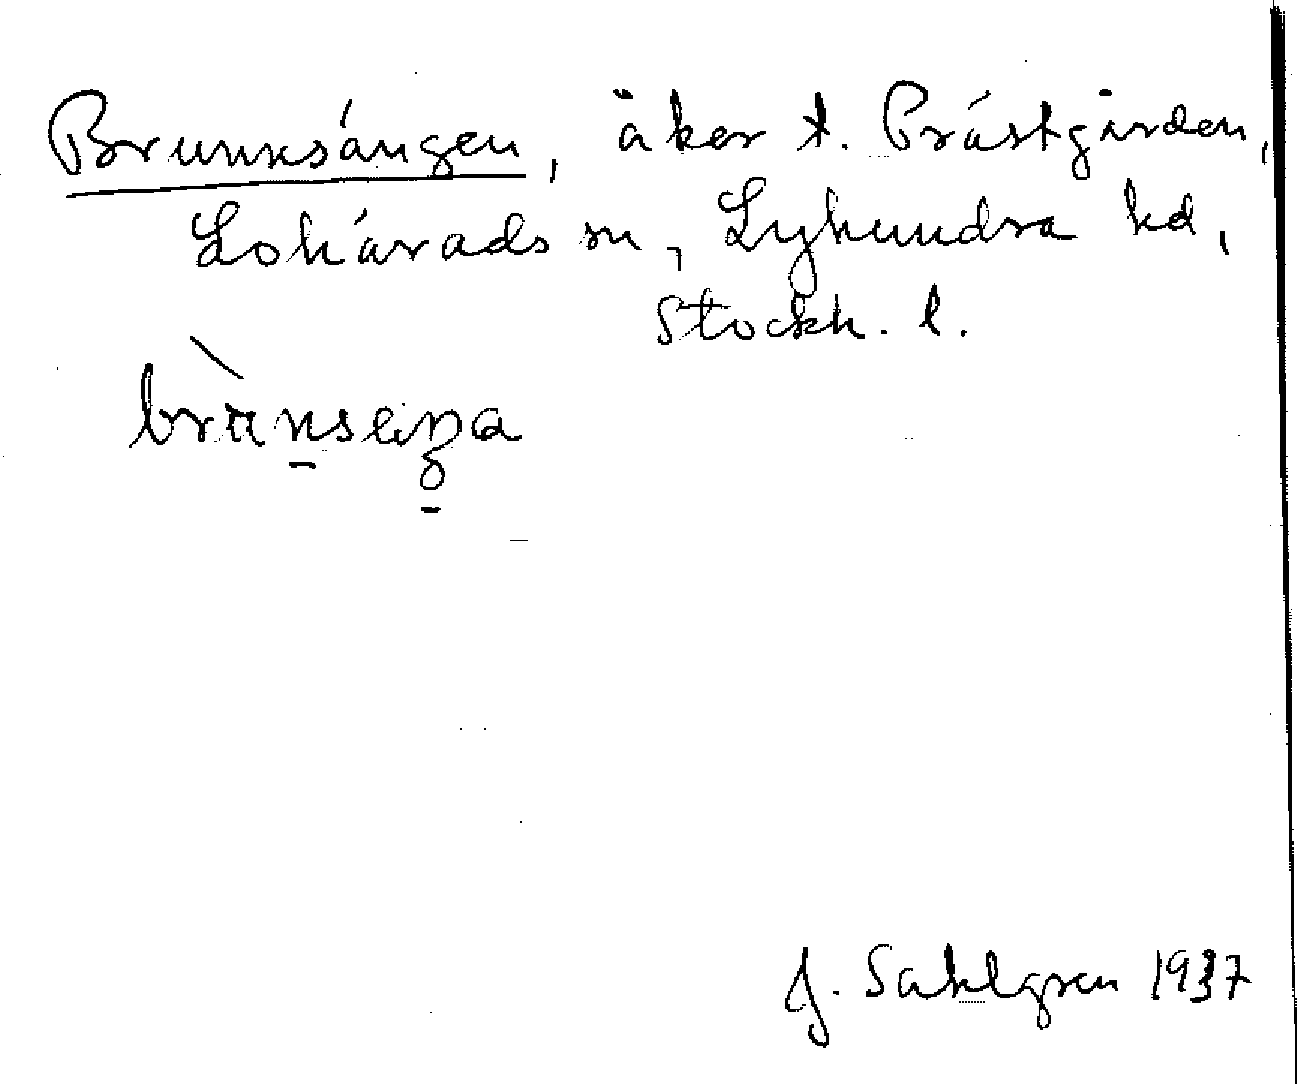 Brunnsängen, åker t. Prästgården,
Lohärads sn, Lyhundra hd,
Stockh. l.
J. Sahlgren 1937